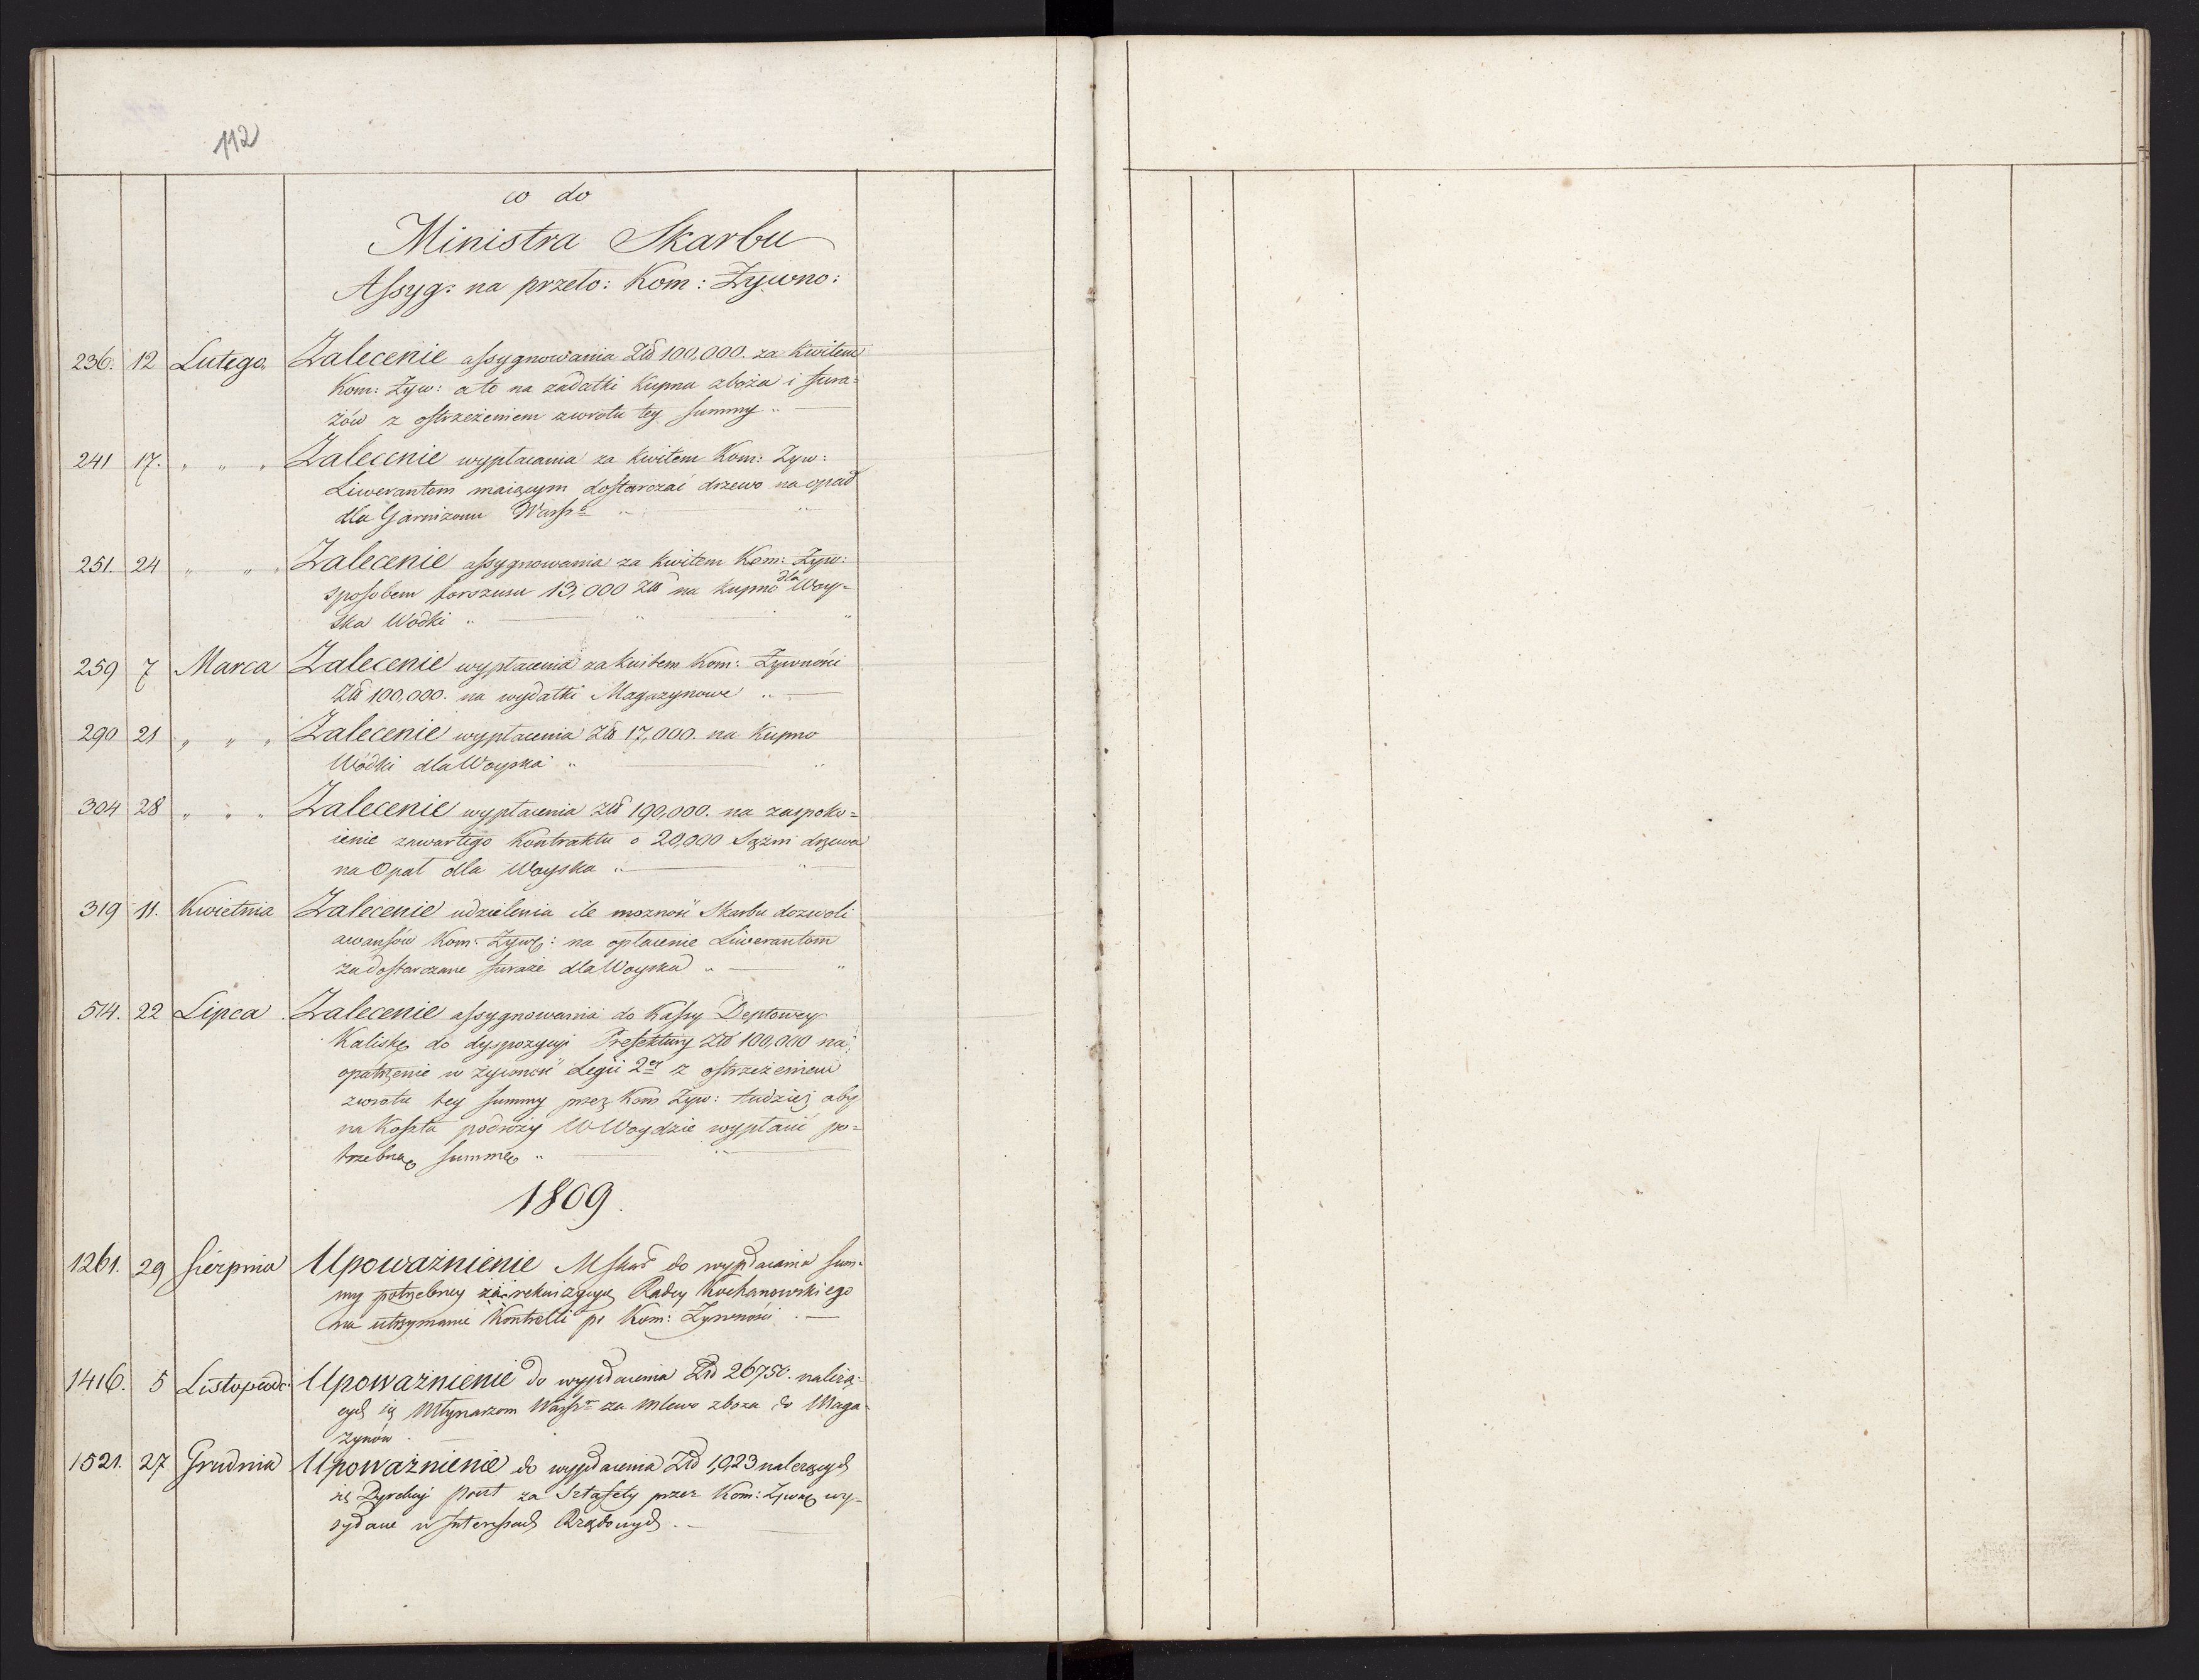 112
co do
Ministra Skarbu
Assyg: na przeło: Kom: Żywno:
236. 12 Lutego. Zalecenie assygnowania Zło 100,000. za Kwitem
Kom: Żyw: a to na zadatki Kupna zboża i fura=
żów z ostrzeżeniem zwrotu tey summy „ —
241 17. „ „ „ Zalecenie wypłacania za kwitem Kom: Żyw:
Liwerantom maiącym dostarczać drzewo na opad
dla Garnizonu „
251. 24 „ „ „ Zalecenie assygnowania za kwitem Kom: Żyw:
sposobem forszusu 13,000 Zło na kupno dla Woy=
ska Wodki „ — „ — „
259 7 Marca Zalecenie wypłacenia za kwitem Kom: Żywności
Zło 100,000. na wydatki Magazynowe „ —
290 21 „ „ „ Zalecenie wypłacenia Zło 17,000. na Kupno
Wódki dla Woyska „ — „
304 28 „ „ „ Zalecenie wypłacenia Zło 190,000. na zaspoko=
ienie zawartego Kontraktu o 20,000 Sążni drzewa
na Opał dla Woyska „ — „
319 11. Kwietnia Zalecenie udzielenia ile możność Skarbu dozwoli
awansów Kom: na opłacenie Liwerantom
za dostarczane furaże dla Woyska „ — „
514. 22 Lipca Zalecenie assygnowania do Kassy Deptowey
do dyspozycyi Prefektury Zło 100,000 na
opatrzenie w żywność Legii 2ey z ostrzeżeniem
zwrotu tey summy przez Kom Żyw: tudzież aby
na Koszta podróży W Woydzie wypłacić po=
trzebną summę „ — „ —
1809.
1261. 29 Sierpnia Upoważnienie M Skar do wypłacania sum=
my potrzebney za rekwizycyą Radcy Kochanowskiego
na utrzymanie Kontrolli po Kom: Żywności . —
1416. 5 Listopada. Upoważnienie do wypłacenia Zło 26750. należą=
cych się Młynarzom za mlewo zboża do Maga=
zynów . —
1521. 27 Grudnia Upoważnienie do wypłacenia Zło 1,923 należących
się Dyrekcyi Poczt za Sztafety przez Kom: wy=
syłane w Interessach Rządowych . —